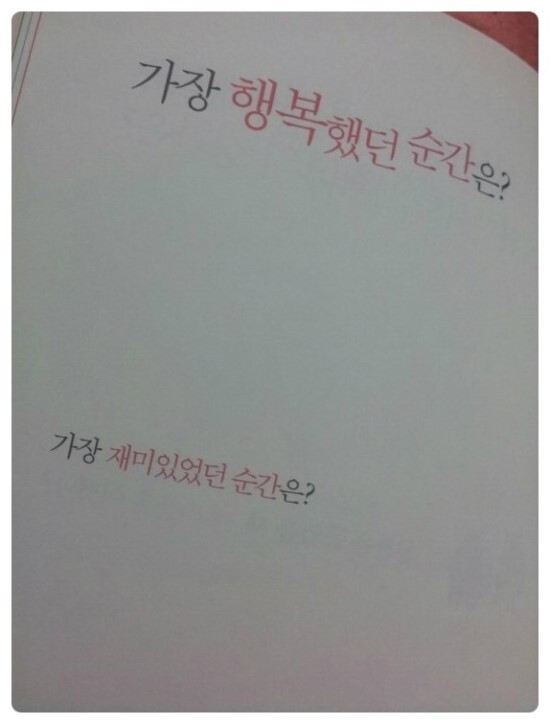 가장 행복했던 순간은?
가장 재미있었던 순간은?